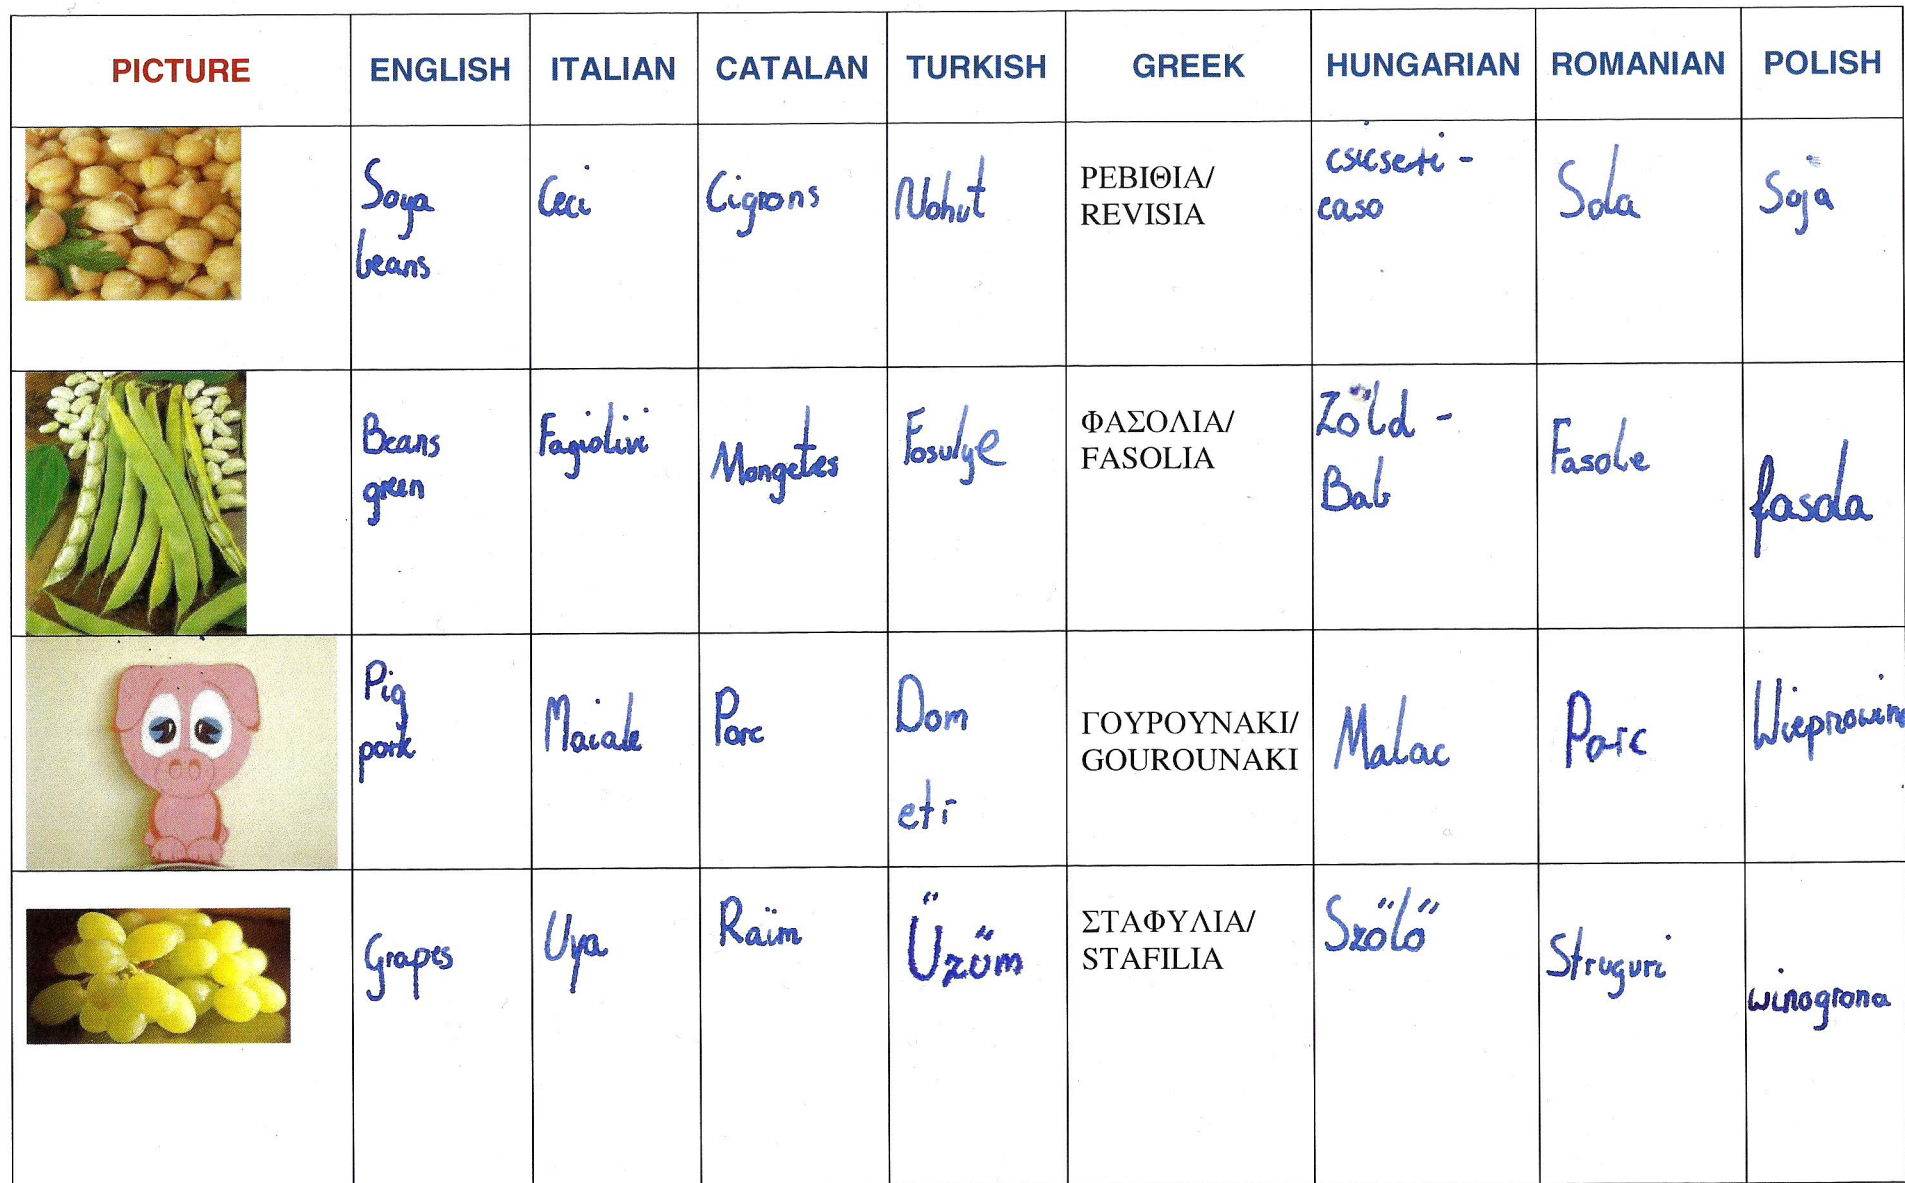 PICTURE ENGLISH ITALIAN CATALAN TURKISH GREEK HUNGARIAN ROMANIAN POLISH
Soya
beans
Ceci
Cigrons
Nohut
ΡΕΒΙΘΙΑ/
REVISIA
csicseri -
caso
Sola
Soja
Beans
green
Fagiolini
Mongetes
Fosulye
ΦΑΣΟΛΙΑ/
FASOLIA
Zöld -
Bab
Fasole
fasola
Pig
pork
Maiale
Porc
Dom
eti
ΓΟΥΡΟΥΝΑΚΙ/
GOUROUNAKI
Malac
Porc
Wieprzowin
Grapes
Uva
Raïm
Üzüm
ΣΤΑΦΥΛΙΑ/
STAFILIA
Szőlő
Struguri
winogrona